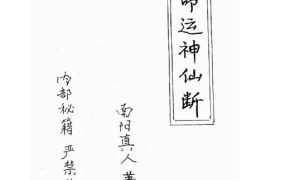 命运神仙断
南阳真人著
内部秘籍 严禁